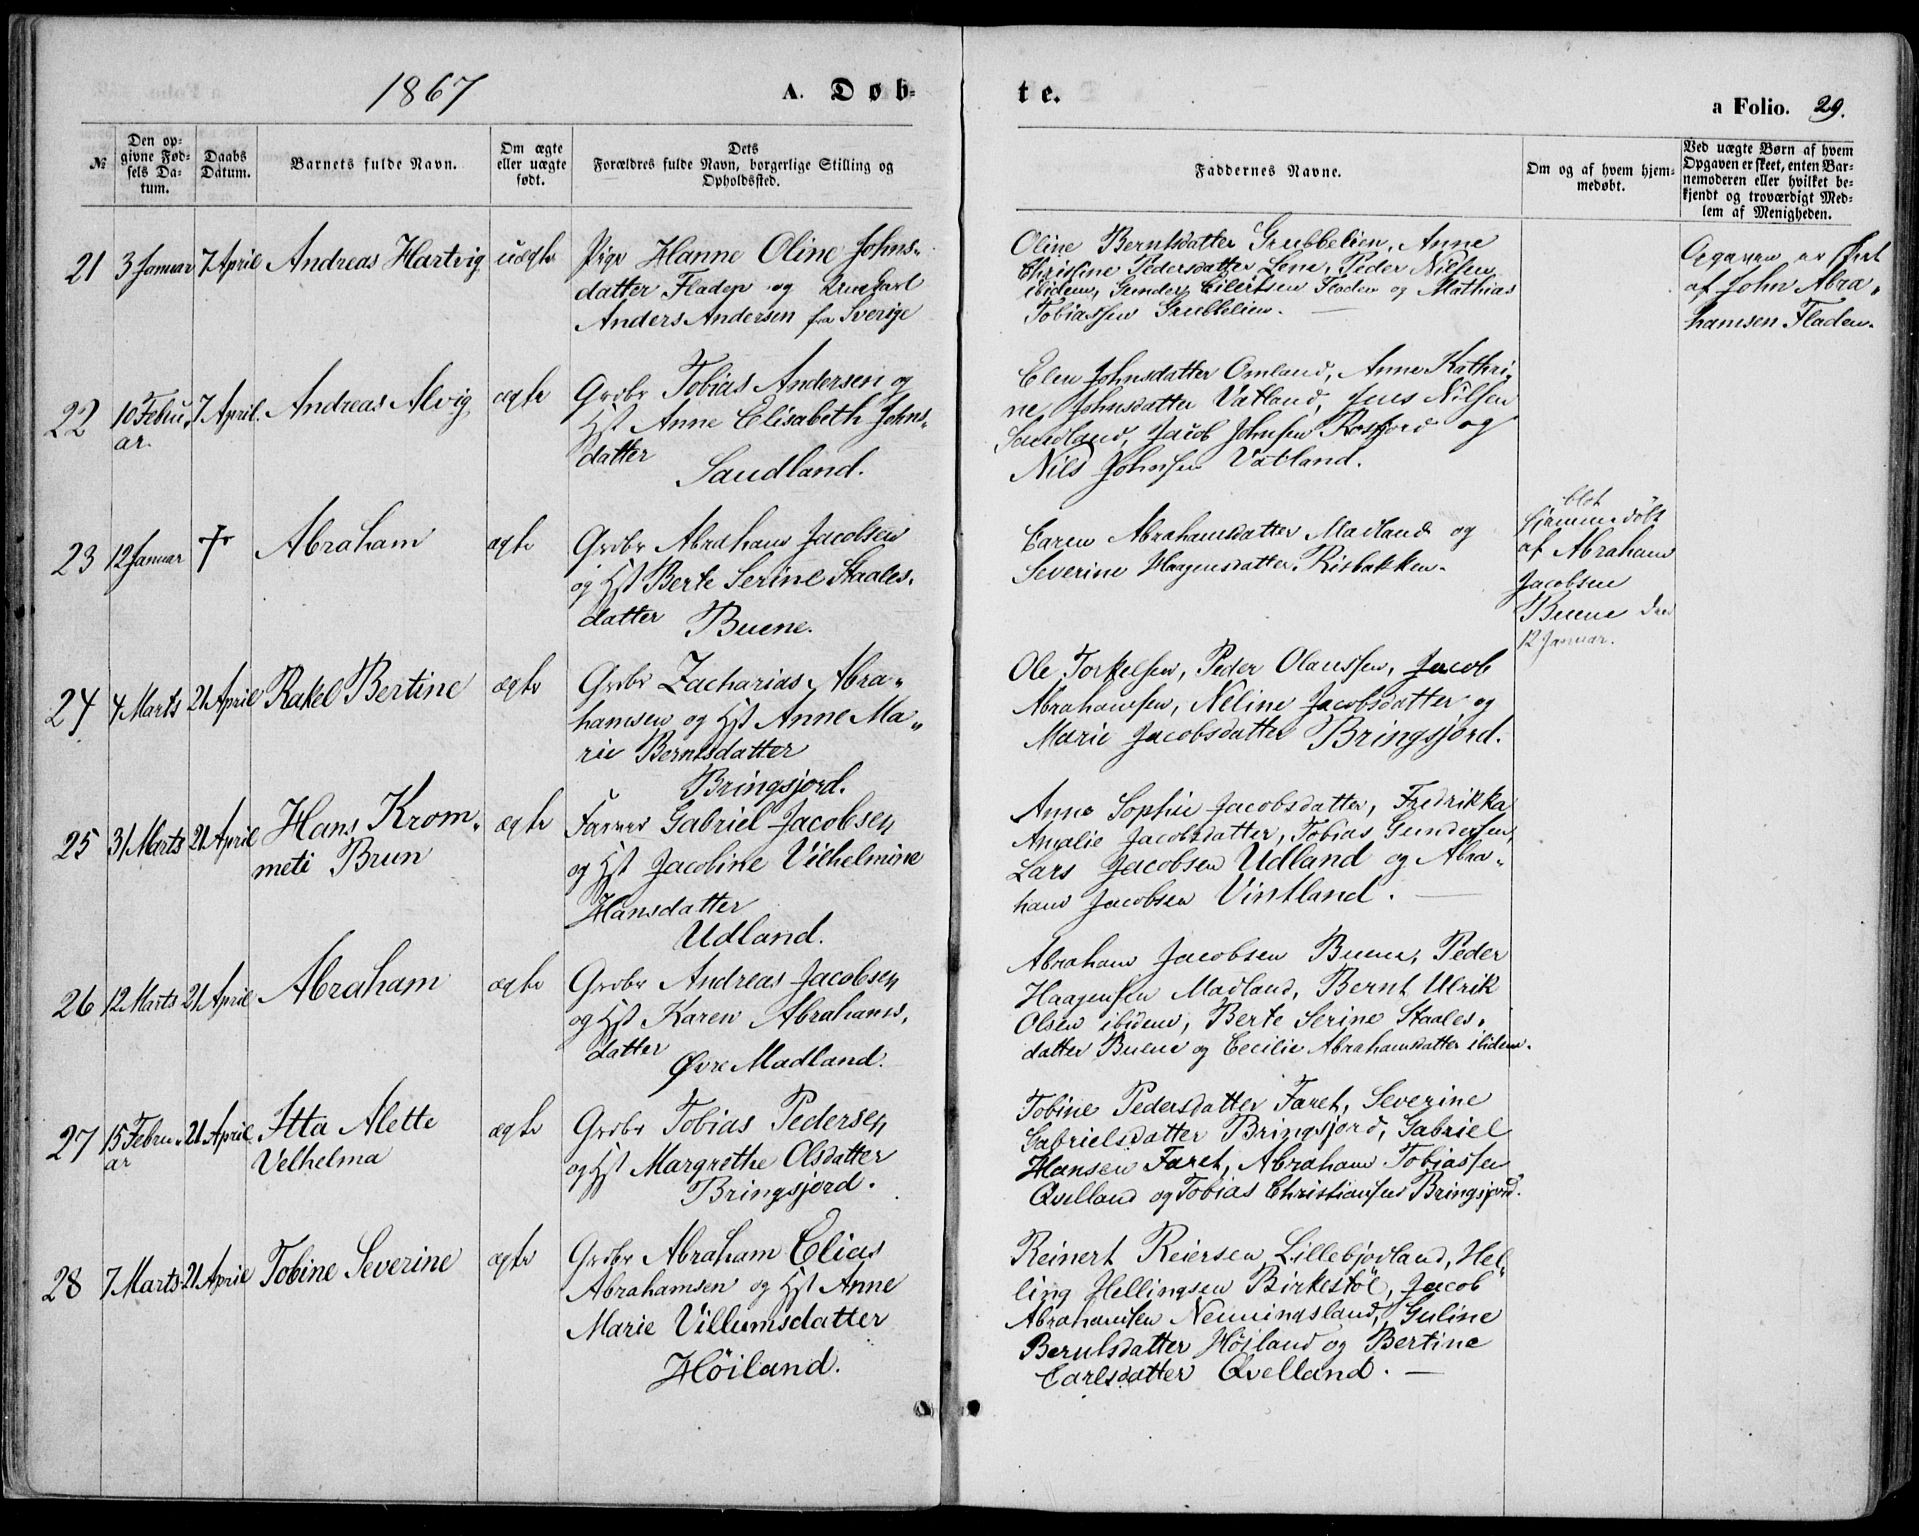 1867
A. Døb-
te.
a Folio. 29.
№
Den op-
givne Fød-
sels Da-
tum.
Daabs
Datum.
Barnets fulde Navn.
Om ægte
eller uægte
født.
Dets
Forældres fulde Navn, borgerlige Stilling og
Opholdssted.
Faddernes Navne.
Om og af hvem hjem-
medøbt.
Ved uægte Børn af hvem
Opgaven er skeet, enten Bar-
nemoderen eller hvilket be-
kjendt og troværdigt Med-
lem af Menigheden.
21 3 Januar 7 April Andreas Hartvig uægte
Pige Hanne Oline Johns-
datter Fladen og
Anders Andersen fra Sverige
Oline Berntsdatter Grubbelien, Anne
Christine Pedersdatter Lene, Peder Nilsen
ibidem, Gunder Eilertsen Fladen og Mathias
Tobiassen Grubbelien.
Opgaven er skeet
af John Abra-
hamsen Fladen.
22 10 Febru-
ar. 7 April. Andreas Alvig ægte
Grdbr Tobias Andersen og
Hst Anne Elisabeth Johns-
datter
Saudland.
Elen Johnsdatter Omland, Anne Kathri-
ne Johnsdatter Vatland, Jens Nilsen
Saudland, Jacob Johnsen Rosfjord og
Nils Johnsen Vatland.
23 12 Januar † Abraham ægte
Grdbr Abraham Jacobsen
og Hst Berte Serine Staales-
datter
Buene.
Caren Abrahamsdatter Madland og
Severine Haagensdatter Risbakken.
blot
hjemmedøbt
af Abraham
Jacobsen
Buene den
12 Januar.
24 4 Marts 21 April Rakel Bertine ægte
Grdbr Zacharias Abra-
hamsen og Hst Anne Ma-
rie Berntsdatter
Bringsjord.
Ole Torkelsen, Peder Olaussen, Jacob
Abrahamsen, Neline Jacobsdatter og
Marie Jacobsdatter Bringsjord.
25 31 Marts 21 April Hans Krom-
meti Brun ægte
Gabriel Jacobsen
og Hst Jacobine Vilhelmine
Hansdatter
Udland.
Anne Sophie Jacobsdatter, Fredrikka
Amalie Jacobsdatter, Tobias Gundersen,
Lars Jacobsen Udland og Abra-
ham Jacobsen Vintland.
26 12 Marts 21 April Abraham ægte
Grdbr Andreas Jacobsen
og Hst Karen Abrahams-
datter
Øvre Madland.
Abraham Jacobsen Buene, Peder
Haagensen Madland, Bernt Ulrik
Olsen ibidem, Berte Serine Staales-
datter Buene og Cecilie Abrahamsdatter ibidem.
27 15 Febru-
ar 21 April Itta Alette
Velhelma ægte
Grdbr Tobias Pedersen
og Hst Margrethe Olsdatter
Bringsjord.
Tobine Pedersdatter Faret, Severine
Gabrielsdatter Bringsjord, Gabriel
Hansen Faret, Abraham Tobiassen
Qvelland og Tobias Christiansen Bringsjord.
28 7 Marts 21 April Tobine Severine ægte
Grdbr Abraham Elias
Abrahamsen og Hst Anne
Marie Villumsdatter
Høiland.
Reinert Reiersen Lillebjovland, Hel-
ling Hellingsen Birkestøl, Jacob
Abrahamsen Nenningsland, Guline
Berulsdatter Høiland og Bertine
Carlsdatter Qvelland.